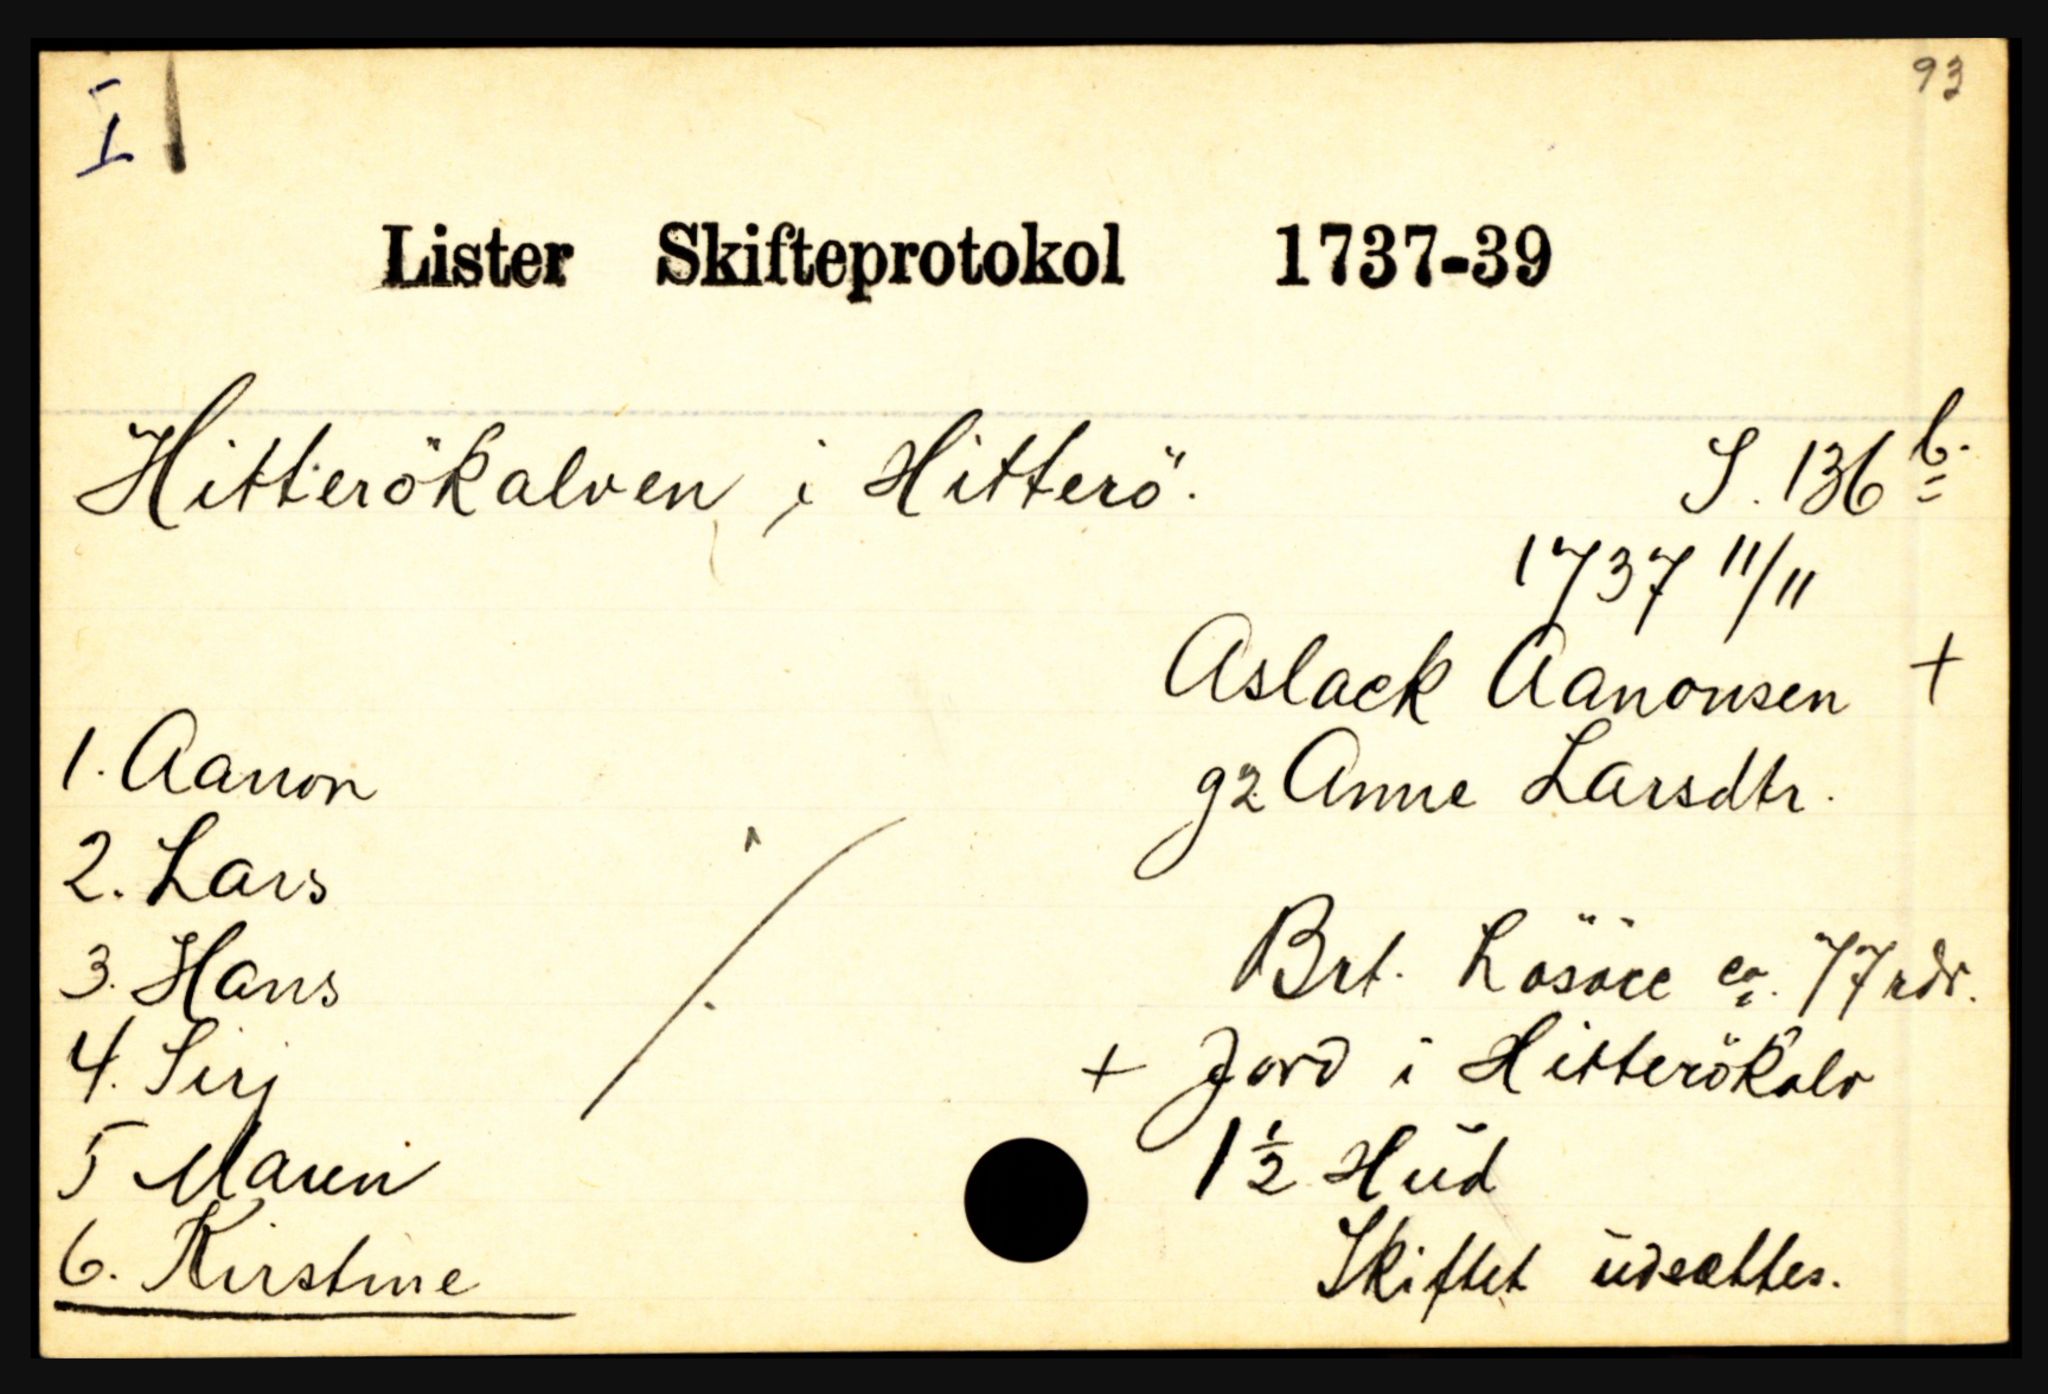 I
93
Lister Skifteprotokol 1737-39
Hitterökalven i Hitterö.
S. 136 b.
1737 11/11
Aslack Aanonsen +
g2 Anne Larsdtr.
1. Aanon
2. Lars
3. Hans
4. Sirj
5 Maren
6. Kirstine
Brt. Lösöre ca. 77 rdr.
+ Jord i Hitterökalv
1½ Hud
Skiftet udsættes.